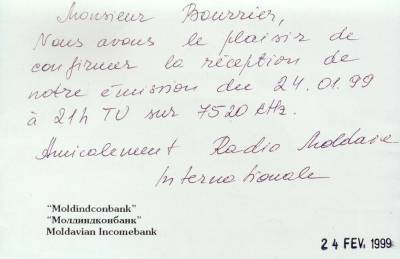 Monsieur Bourrier,
Nous avons le plaisir de
confirmer la réception de
notre émission du 24.01.99
à 21h TU sur 7520 kHz.
Amicalement Radio Moldavie
Internationale
“Moldindconbank”
“Моллиндконбанк”
Moldavian Incomebank
24 FEV. 1999